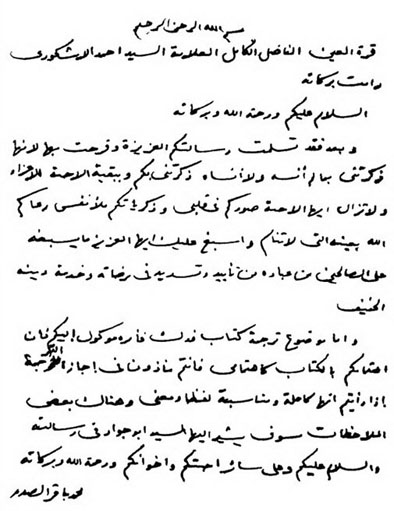 بسم الله الرحمن الرحيم
قرة العين الفاضل الكامل العلامة السيد احمد الاشكوري
دامت بركاته
السلام عليكم ورحمة الله وبركاته
وبعد فقد تسلمت رسالتكم العزيزة وفرحت بها لانها
ذكرتني بما لم أنسه ولا أنساه ذكرتني بكم وببقية الاحبة الاعزاء
ولا تزال ايها الاحبة صوركم في قلبي وذكرياتكم ملأ نفسي رعاكم
الله بعينه التي لا تنام واسبغ عليك ايها العزيز ما يسبغه
على الصالحين من عباده من تأييد وتسديد في رضاته وخدمة دينه
الحنيف
واما موضوع ترجمة كتاب فدك فأمره موكول إليكم فان
اهتمامكم بالكتاب كاهتمامي فانتم مأذونان في اجازة الترجمة
إذا رأيتم انها كاملة ومناسبة لفظا ومعنى وهناك بعض
الملاحظات سوف يشير اليها السيد ابو جواد في رسالته
والسلام عليكم وعلى سائر احبتكم واخوانكم ورحمة الله وبركاته
محمد باقر الصدر